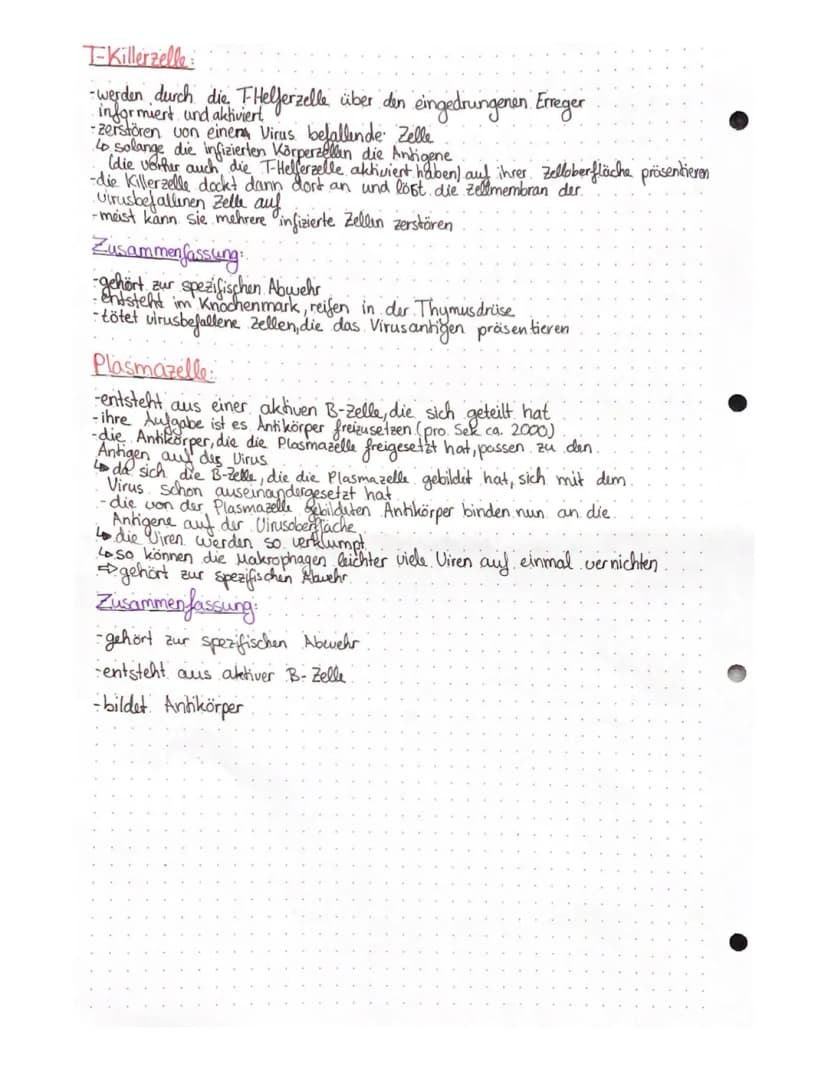 T-Killerzelle:
-werden durch die T-Helferzelle über den eingedrungenen Erreger
informiert und aktiviert
-zerstören von einem Virus befallende Zelle
↳ solange die infizierten Körperzellen die Antigene
(die vorher auch die T-Helferzelle aktiviert haben) auf ihrer Zelloberfläche präsentieren
-die Killerzelle dockt dann dort an und löst die Zellmembran der
virusbefallenen Zelle auf
-meist kann sie mehrere infizierte Zellen zerstören
Zusammenfassung:
-gehört zur spezifischen Abwehr
-entsteht im Knochenmark, reifen in der Thymusdrüse
-tötet virusbefallene Zellen, die das Virusantigen präsentieren
Plasmazelle:
-entsteht aus einer aktiven B-Zelle, die sich geteilt hat
-ihre Aufgabe ist es Antikörper freizusetzen (pro Sek ca. 2000)
-die Antikörper, die die Plasmazelle freigesetzt hat, passen zu den
Antigen auf des Virus
↳ da sich die B-Zelle, die die Plasmazelle gebildet hat, sich mit dem
Virus schon auseinandergesetzt hat
-die von der Plasmazelle gebildeten Antikörper binden nun an die
Antigene auf der Virusoberfläche
↳ die Viren werden so verklumpt
↳ so können die Makrophagen leichter viele Viren auf einmal vernichten
⇒ gehört zur spezifischen Abwehr
Zusammenfassung:
-gehört zur spezifischen Abwehr
-entsteht aus aktiver B-Zelle
-bildet Antikörper